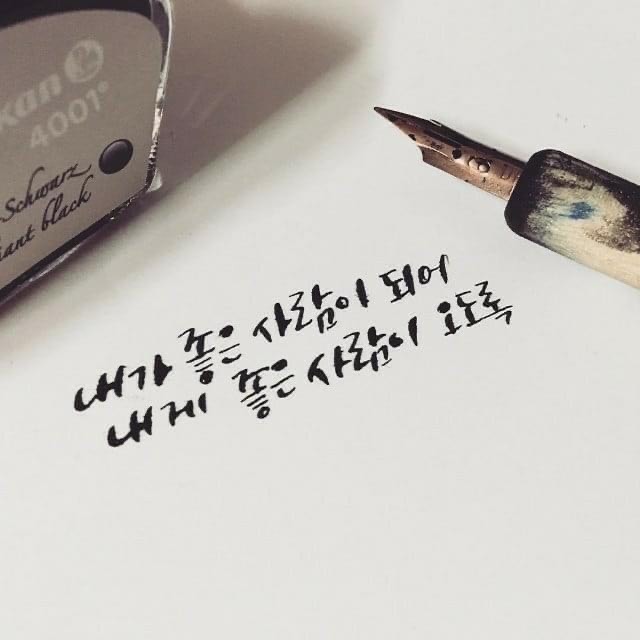 4001®
Schwarz
내가 좋은 사람이 되어
내게 좋은 사람이 오도록